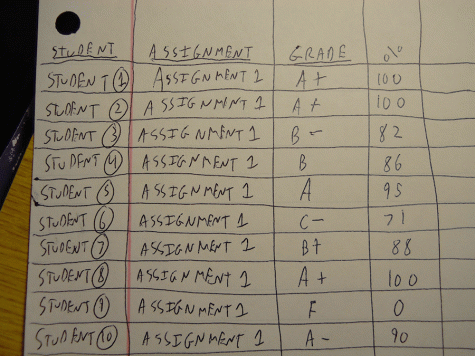 STUDENT ASSIGNMENT GRADE %
STUDENT 1 ASSIGNMENT 1 A+ 100
STUDENT 2 ASSIGNMINT 1 A+ 100
STUDENT 3 ASSIGNMENT 1 B- 82
STUDENT 4 ASSIGNMENT 1 B 86
STUDENT 5 ASSIGNMENT 1 A 95
STUDENT 6 ASSIGNMENT 1 C- 71
STUDENT 7 ASSIGNMENT 1 B+ 88
STUDENT 8 ASSIGNMENT 1 A+ 100
STUDENT 9 ASSIGNMENT 1 F 0
STUDENT 10 ASSIGNMENT 1 A- 90